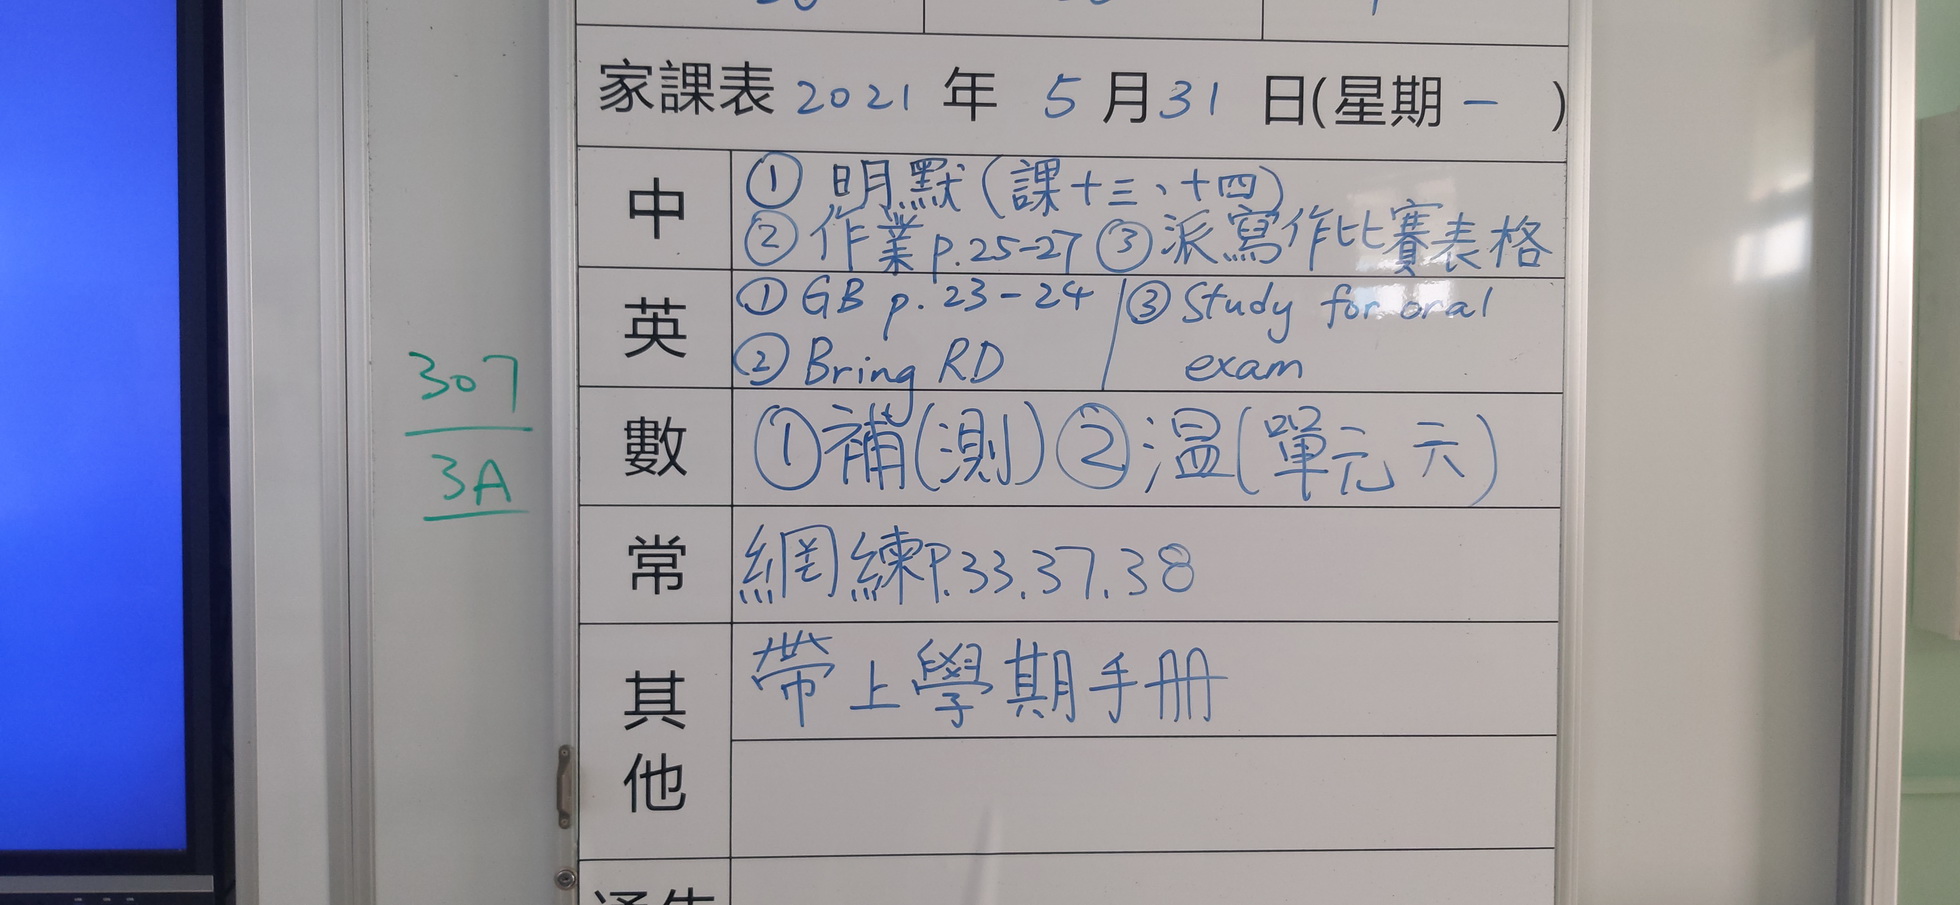 家課表 2021 年 5 月 31 日(星期一 )
中
① 明默(課十三、十四)
② 作業 p.25-27 ③ 派寫作比賽表格
英
① GB p.23-24
② Bring RD
③ Study for oral
exam
307
3A
數
① 補(測) ② 温(單元六)
常
網練P.33.37.38
其他
帶上學期手册
通告